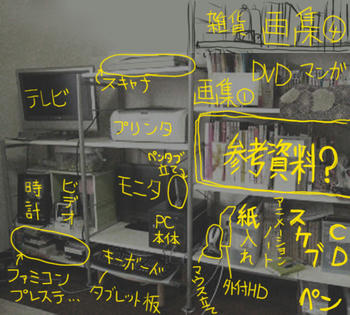 雑貨
画集④
スキャナ
DVD
マンガ
テレビ
画集①
プリンタ
参考資料?
ペンタブ立て
モニタ
時計
ビデオ
PC本体
紙入れ
アニメーションノート
スケブ
CD
キーボード
ファミコン
プレステ...
タブレット板
マウス立て
外付HD
ペン